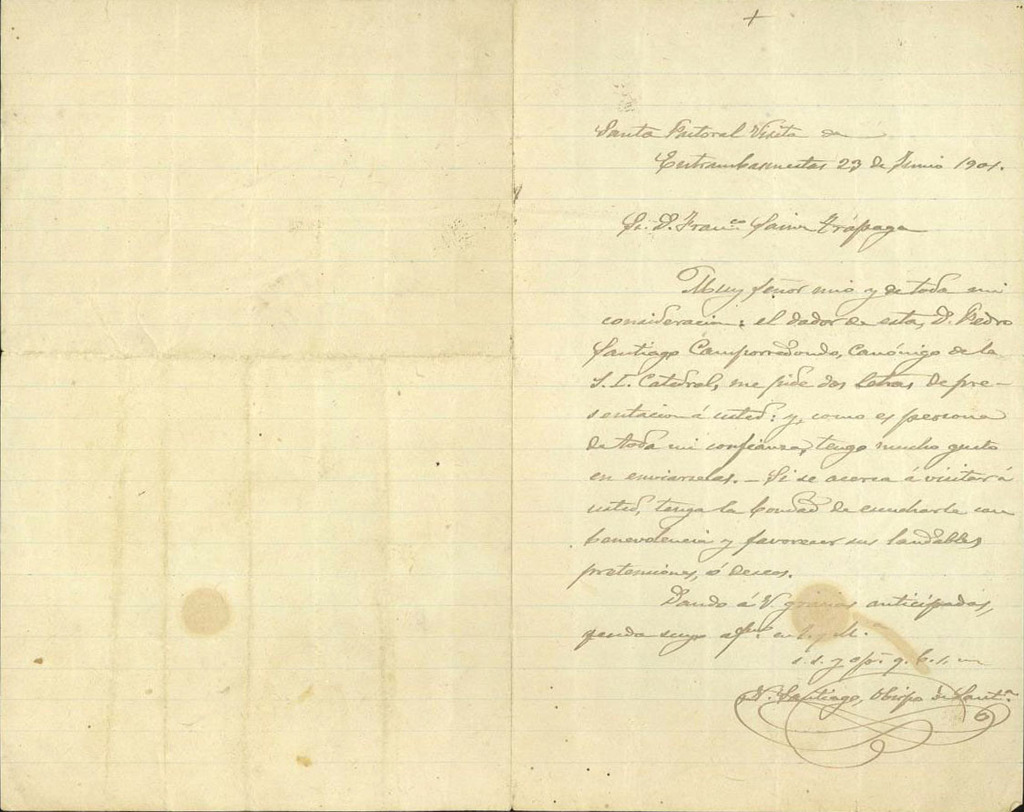 +
Santa Pastoral Visita de
Entrambasmestas 23 de Junio 1901.
Sr. D. Franco. Sainz Trápaga
Muy señor mio y de toda mi
consideracion: el dador de esta, D. Pedro
Santiago Camporredondo, Canónigo de la
S. I. Catedral, me pide dos letras de pre-
sentacion á usted: y, como es persona
de toda mi confianza, tengo mucho gusto
en enviarselas. – Si se acerca á visitar á
usted, tenga la bondad de escucharle con
benevolencia y favorecer sus laudables
pretensiones, ó deseos.
Dando á V gracias anticipadas,
queda suyo afmo. en J. y M.
s. s. y q. b. s. m
V. Santiago, Obispo de Santr.